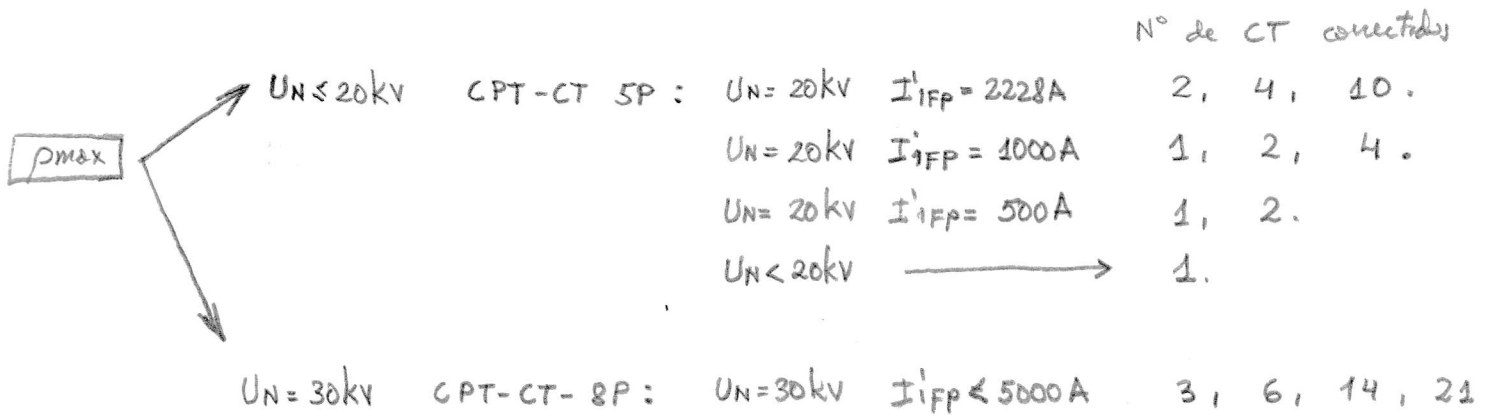 Nº de CT conectados
UN ≤ 20kV CPT-CT 5P : UN = 20kV I'1FP = 2228A 2, 4, 10.
ρmax UN = 20kV I'1FP = 1000A 1, 2, 4.
UN = 20kV I'1FP = 500A 1, 2.
UN < 20kV → 1.
UN = 30kV CPT-CT-8P : UN = 30kV I'1FP ≤ 5000A 3, 6, 14, 21